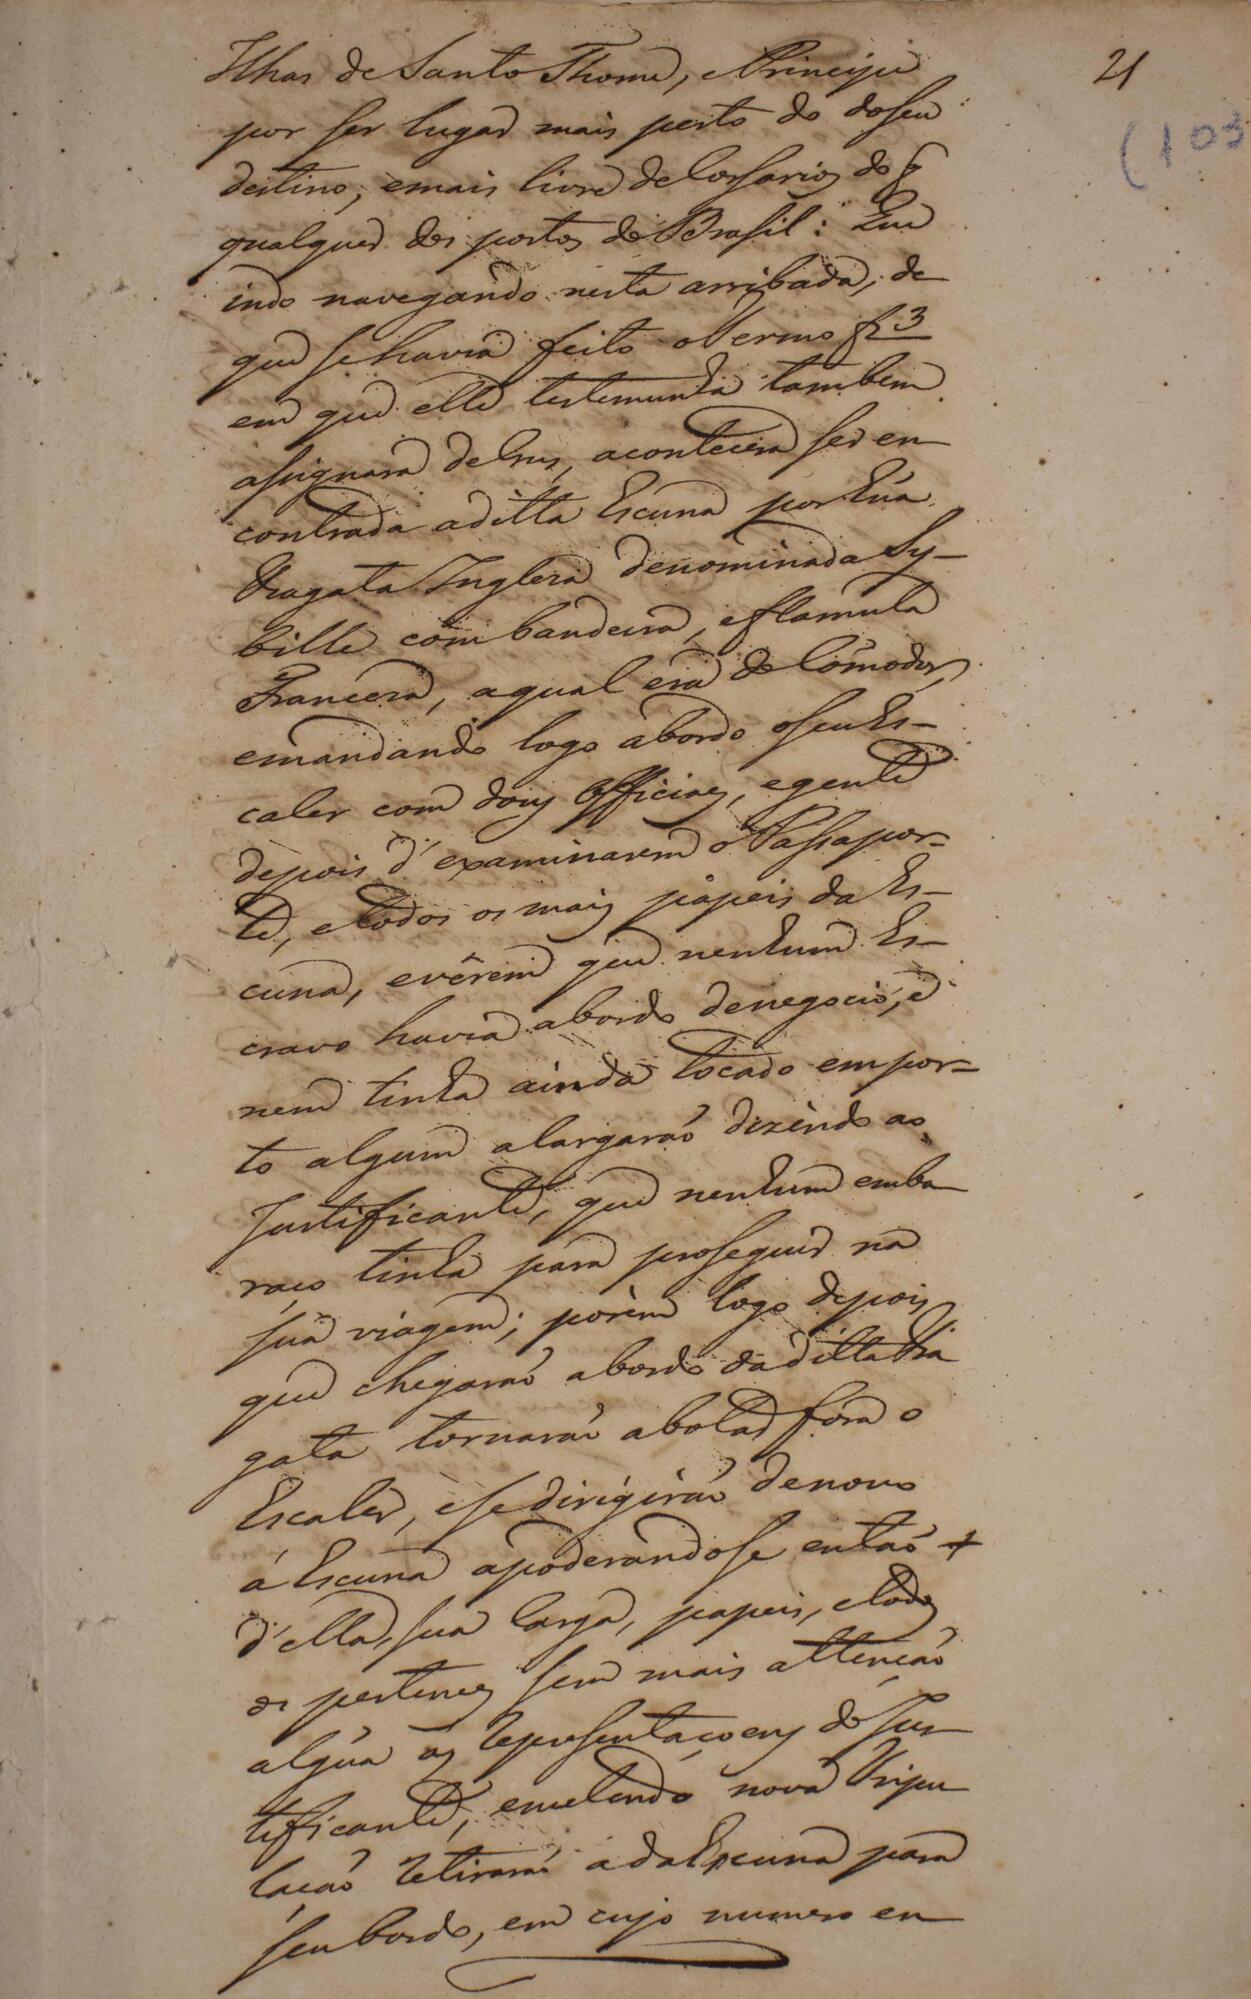 Ilhas de Santo Thome, e Principe
21
(103
por ser lugar mais perto do do seu
destino, e mais livre de Corsarios do q
qualquer dos portos do Brasil: Que
indo navegando nesta arribada, de
que se havia feito o Termo f 3
em que elle testemunha tambem
assignara de Cruz, acontecera ser en
contrada a ditta Escuna por húa
Fragata Ingleza denominada Sy-
bille com bandeira, e flamula
Franceza, a qual era do Cômodor,
e mandando logo abordo o seu Es-
caler com dous Officiaes, e gente
depois d'examinarem o Passapor-
te, e todos os mais papeis da Es-
cuna, e vêrem que nenhum Es-
cravo havia abordo de negocio, e
nem tinha ainda tocado em por-
to algum a largaraó dizendo ao
Justificante, que nenhum emba
raço tinha para proseguir na
sua viagem; porèm logo depois
que chegaraó abordo da ditta Fra
gata tornaraó a botar fora o
Escaler, e se dirigiraó de novo
á Escuna apoderandose entaó +
d'ella, sua Carga, papeis, e todos
os pertences sem mais attençaó
algúa ás representaçoens do Jus
tificante, e metendo nova Tripu
laçaó retiraraó a da Escuna para
seu bordo, em cujo numero en